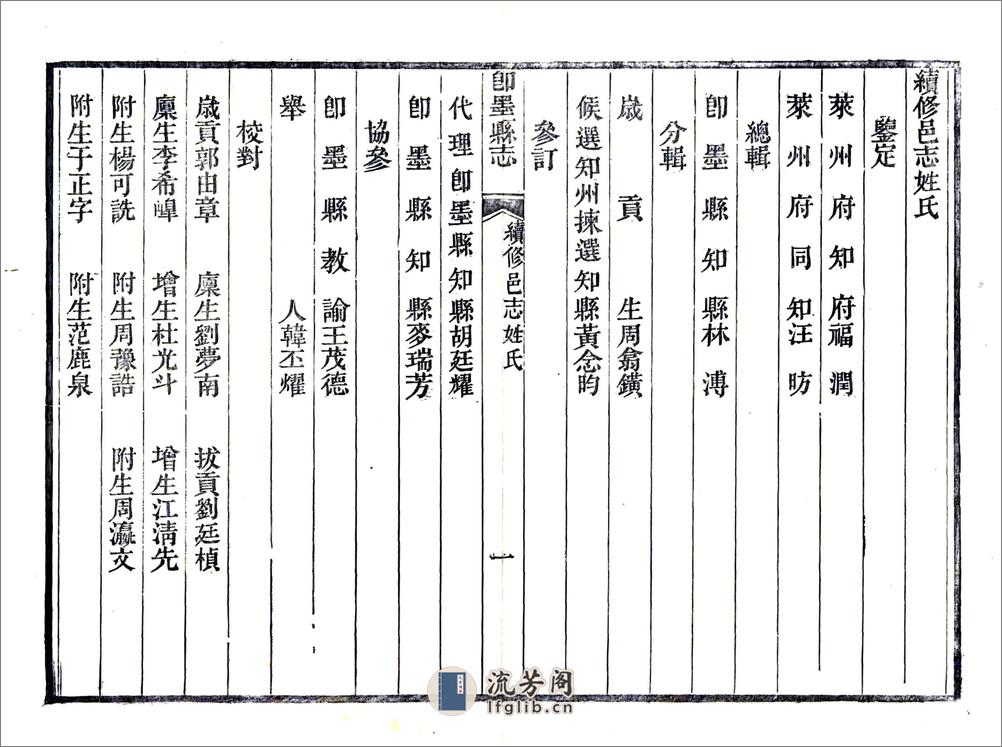 續修邑志姓氏
鑒定
萊州府知府福潤
萊州府同知汪昉
總輯
卽墨縣知縣林溥
分輯
歲貢生周翕鐄
候選知州揀選知縣黃念昀
參訂
卽墨縣志
續修邑志姓氏
一
代理卽墨縣知縣胡廷耀
卽墨縣知縣麥瑞芳
協參
卽墨縣教諭王茂德
舉人韓丕耀
校對
歲貢郭由章 廩生劉夢南 拔貢劉廷楨
廩生李希皥 增生杜光斗 增生江淸先
附生楊可詵 附生周豫誥 附生周瀛文
附生于正字 附生范鹿泉
流芳阁
lfglib.cn